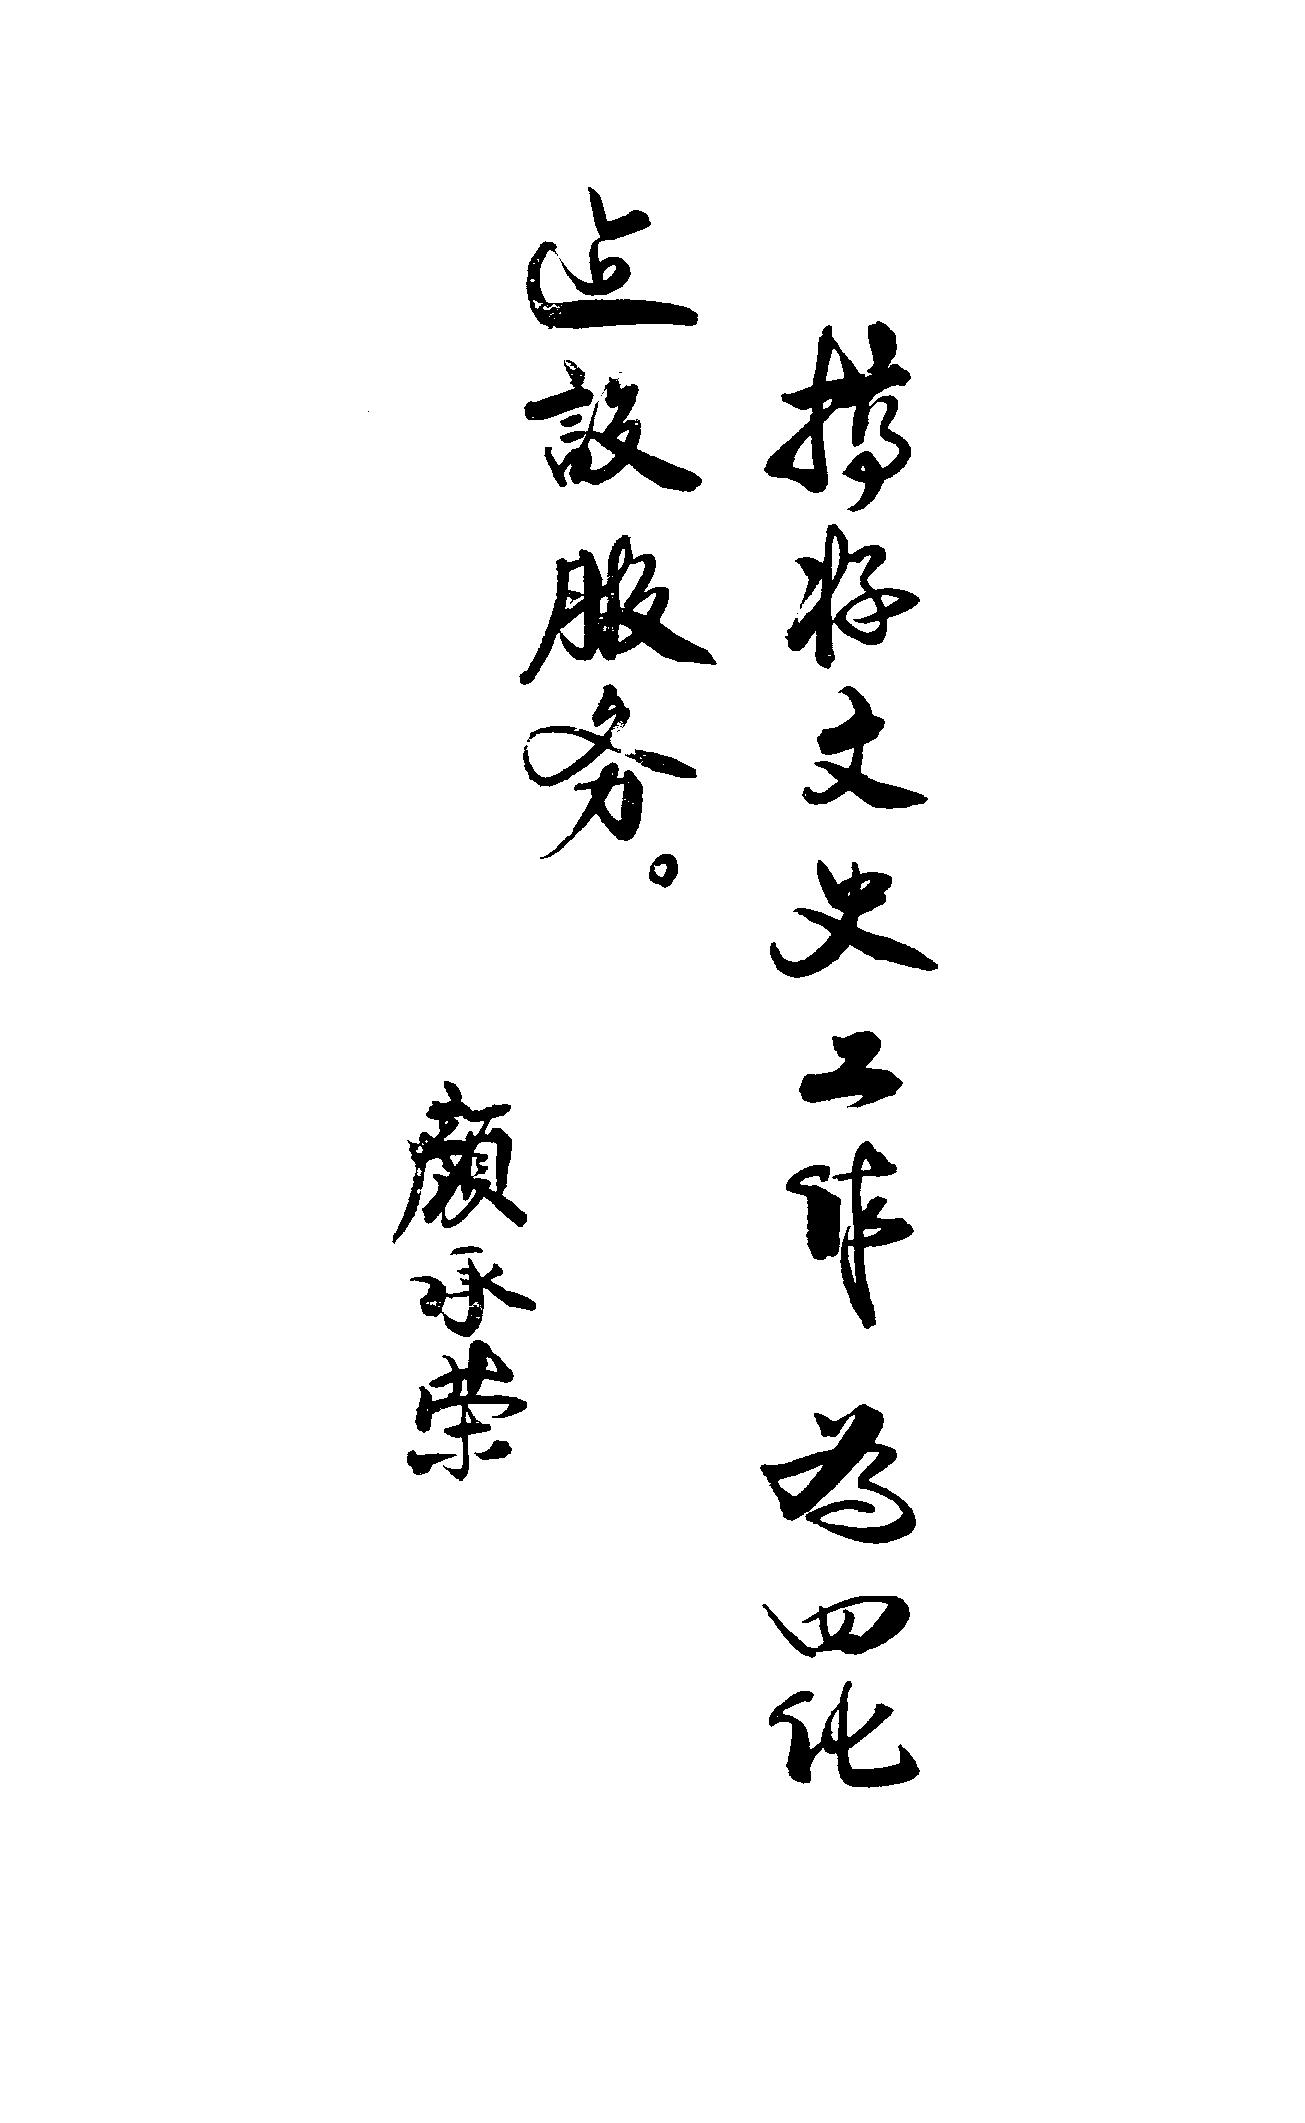 搞好文史工作为四化
建設服务。
顔承荣